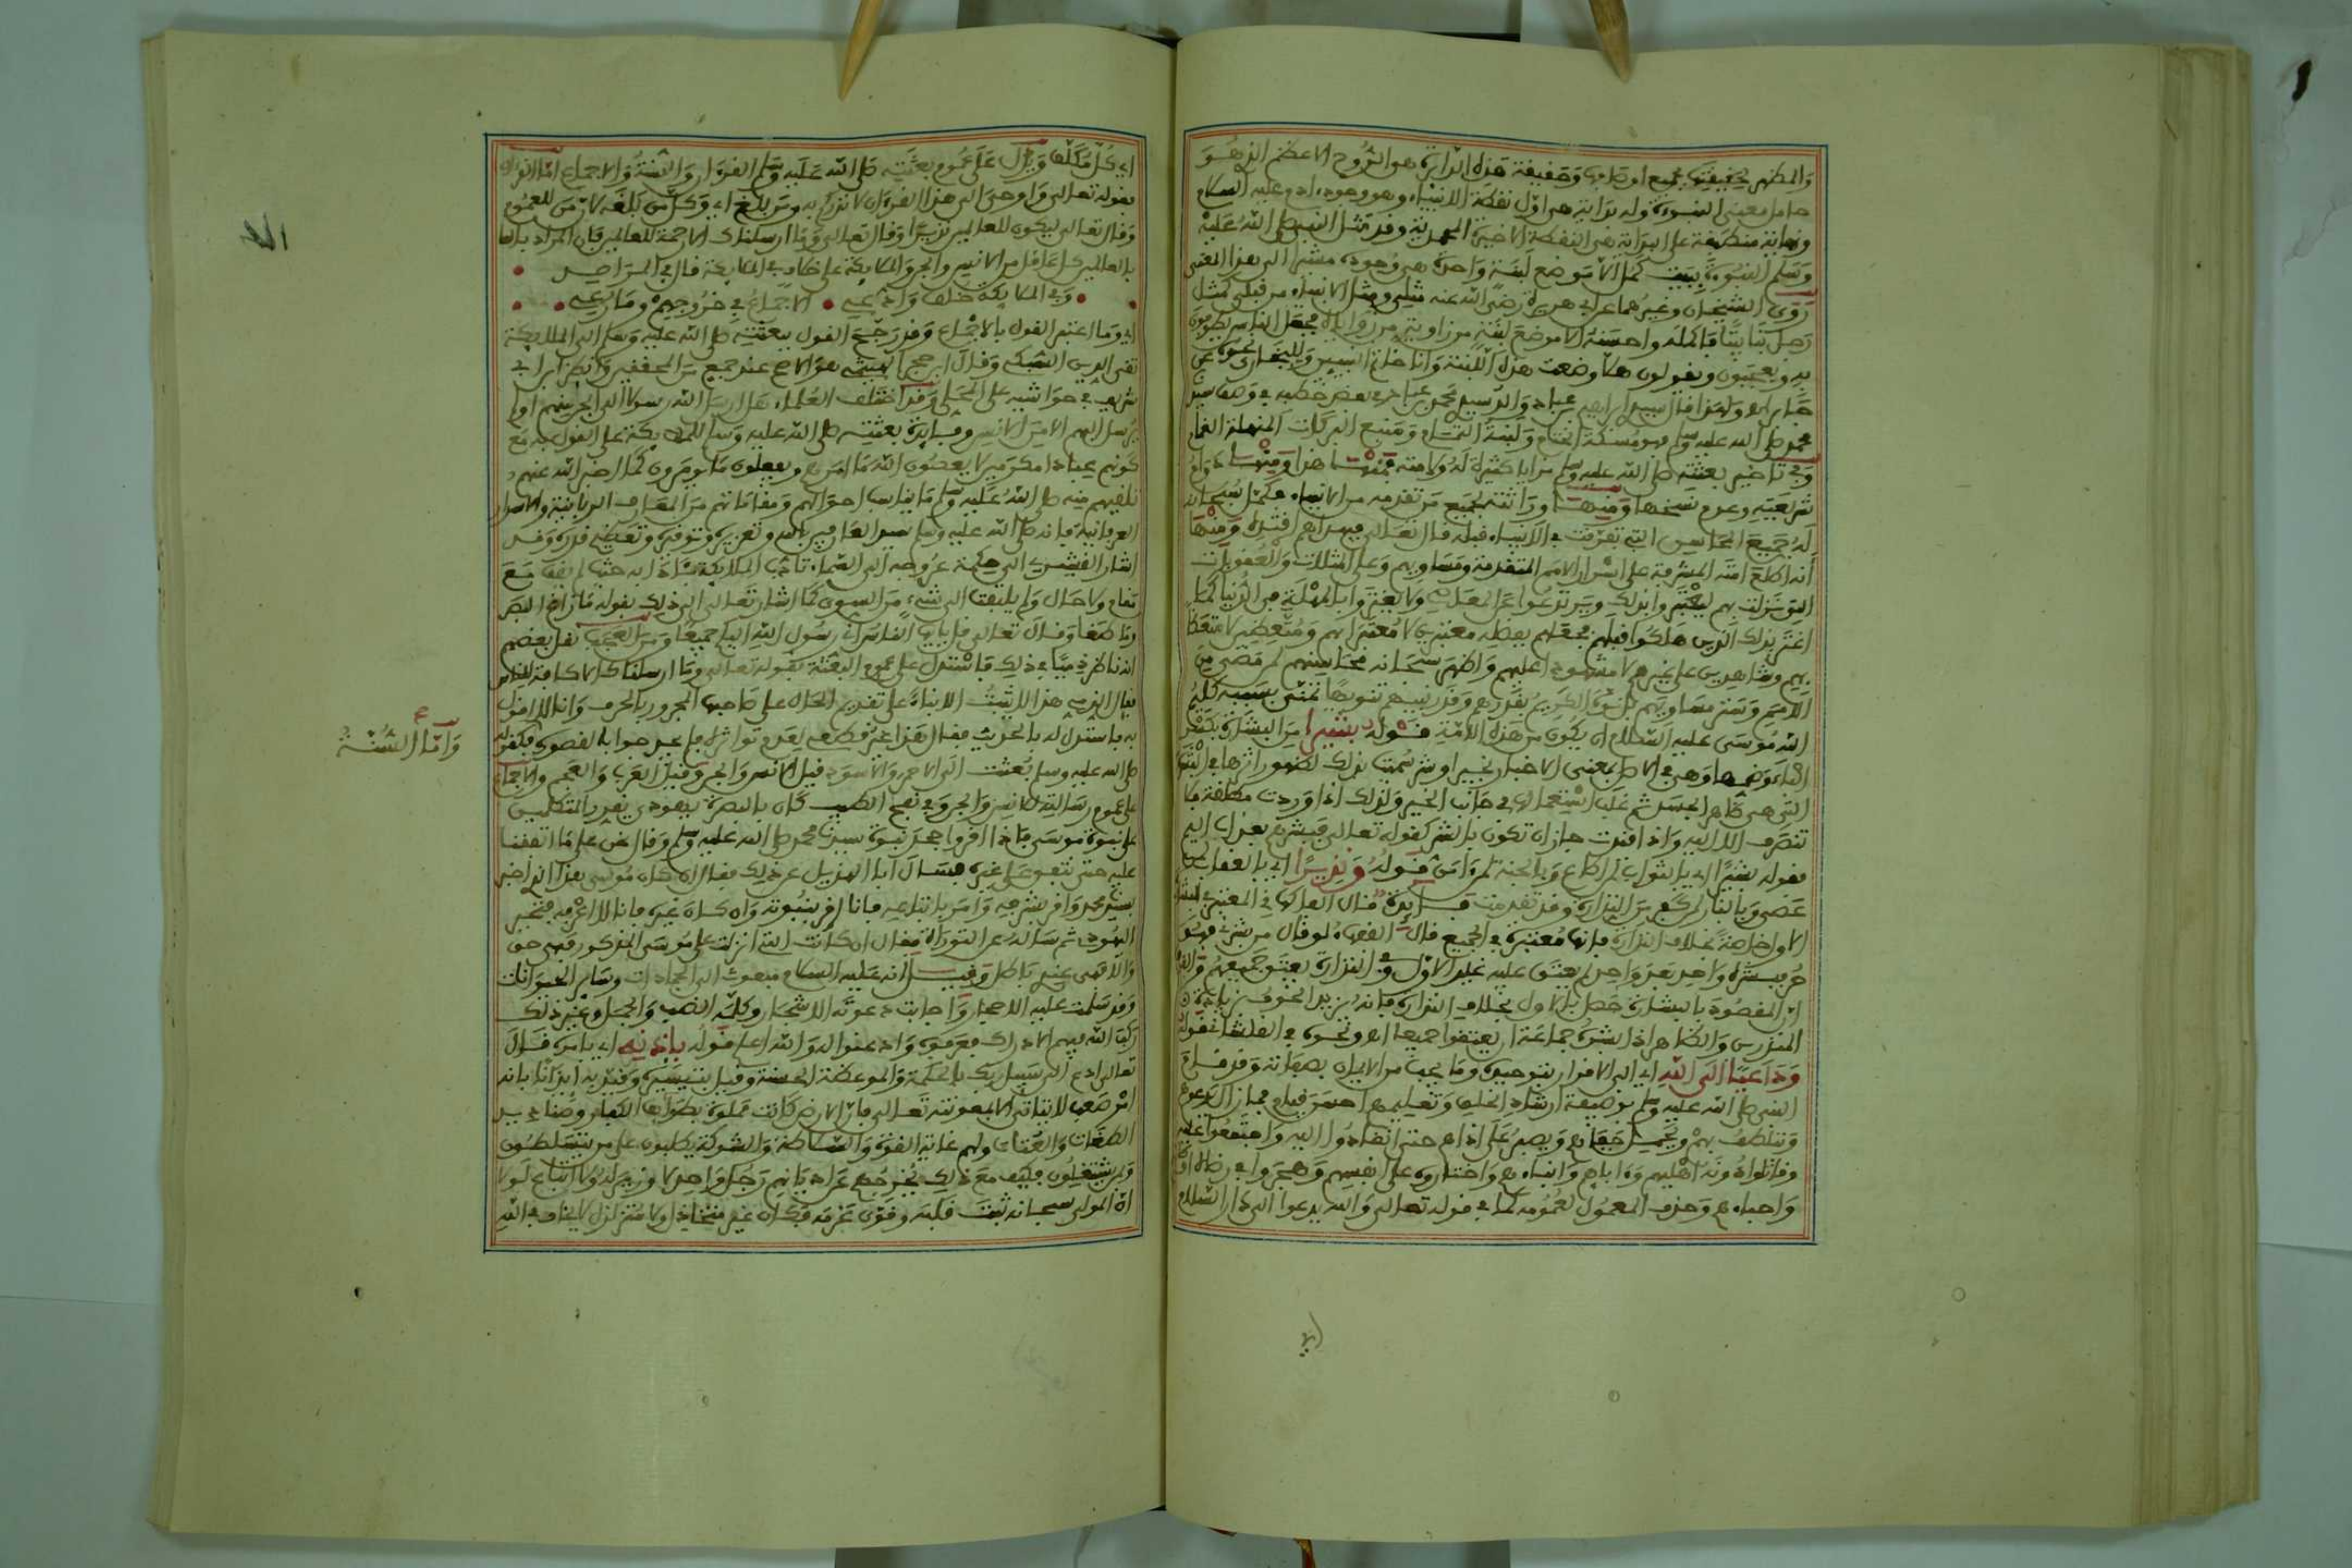 والمظهر بحقيقته جميع اوصافها وحقيقة هذه الدايرة هو الروح الاعظم الذي هو
حامل معنى النبوءة وله بداية هي اول نقطة الانبياء وهو وجود ادم عليه السلام
ونهاية منطبقة على البداية هي النقطة الاخيرة المحمدية وقد مثل النبي صلى الله عليه
وسلم النبوءة ببيت كمل الا موضع لبنة واحدة هي وجوده مشيرا الى هذا المعنى
روى الشيخان وغيرهما عن ابي هريرة رضي الله عنه مثلي ومثل الانبياء من قبلي كمثل
رجل بنا بيتا فاكمله واحسنه الا موضع لبنة من زاوية من زواياه فجعل الناس يطوفون
به ويعجبون ويقولون هلا وضعت هذه اللبنة وانا خاتم النبيين وللبخاري نحوه عن
جابر
محمد صلى الله عليه وسلم فهو مسكة الختام ولبنة التمام ومنبع البركات
وفي تاخير بعثته صلى الله عليه وسلم مزايا كثيرة له ولامته فمنها هذا ومنها دوام
شريعته وعدم نسخها ومنها وراثته لجميع من تقدمه من الانبياء فكمل سبحانه
له جميع المحاسن التي تفرقت في الانبياء قبله قال تعالى فبهداهم اقتده ومنها
انه اطلع امته المشرفة على اسرار الامم المتقدمة ومساويهم وعلى المثلات والعقوبات
التي نزلت بهم
اغتر بذلك الذين هلكوا قبلهم فجعلهم بفضله معتبرين لا معتبرا بهم ومتعظين لا متعظا
بهم وشاهدين على غيرهم لا مشهودا عليهم واظهر سبحانه محاسنهم لمن مضى من
الامم وستر مساويهم
الله موسى عليه السلام ان يكون من هذه الامة قوله بشيرا من البشارة بكسر
الباء وضمها وهي في الاصل بمعنى الاخبار بخير او شر سميت بذلك لظهور اثرها في البشرة
التي هي ظاهر الجسد ثم غلب استعمالها في جانب الخير ولذلك اذا وردت مطلقة فلا
تنصرف الا اليه واذا قيدت جاز ان تكون بالشر كقوله تعالى فبشرهم بعذاب اليم
فقوله بشيرا اي بالثواب لمن اطاع وبالجنة لمن وامن قوله ونذيرا اي بالعقاب لمن
عصى وبالنار لمن كفر من النذارة وقد تقدمت فايدة قال الفاكهاني المعتبر في البشارة
الاول خاصة بخلاف النذارة فانها معتبرة في الجميع قال الفقهاء لو قال من بشرني فهو
حر فبشره واحد بعد واحد لم يعتق عليه غير الاول وفي النذارة يعتق جميعهم والفرق
ان المقصود بالبشارة حصل بالاول بخلاف النذارة فانه يزيد الخوف بزيادة
المنذرين والظاهر اذا بشره جماعة ان يعتقوا جميعا اه ونحوه في القلشاني قوله
وداعيا الى الله اي الى الاقرار بتوحيده وما يجب من الايمان بصفاته وقد قام
النبي صلى الله عليه وسلم بوظيفة ارشاد الخلق وتعليمهم احسن قيام
ويتلطف بهم ويتحمل جفاهم ويصبر على اذاهم حتى انقادوا اليه واجتمعوا عليه
وقاتلوا دونه اهليهم وءاباءهم وابناءهم واختاروه على انفسهم وهجروا في رضاه اوطانهم
واحباءهم وحذف المعمول لعمومه كما في قوله تعالى والله يدعوا الى دار السلام
اي كل مكلف ويدل على عموم بعثته صلى الله عليه وسلم القرءان والسنة والاجماع اما القرءان
فقوله تعالى واوحي الي هذا القرءان لانذركم به ومن بلغ اي وكل من بلغه لان من للعموم
وقال تعالى ليكون للعالمين نذيرا وقال تعالى وما ارسلناك الا رحمة للعالمين فان المراد
بالعالمين كل عاقل من الانس والجن والملايكة على خلاف في الملايكة قال في المراصد
وفي الملايكة خلف وادعي الاجماع في خروجهم وما رعي
اي وما اعتبر القول بالاجماع وقد رجح القول ببعثته صلى الله عليه وسلم الى الملايكة
تقي الدين السبكي وقال ابن حجر الهيتمي هو الاصح عند جمع من المحققين وانظر ابن ابي
شريف في حواشيه على المحلي وقد اختلف العلماء هل ارسل الله رسولا الى الجن منهم اولم
يرسل اليهم الا من الانس وفايدة بعثته صلى الله عليه وسلم للملايكة على القول به مع
كونهم عبادا مكرمين لا يعصون الله ما امرهم ويفعلون ما يومرون كما اخبر الله عنهم
تلقيهم منه صلى الله عليه وسلم ما يناسب احوالهم ومقاماتهم من المعارف الربانية والاسرار
العرفانية فانه صلى الله عليه وسلم سيد العارفين بالله وتعزيره وتوقيره وتعظيم قدره وقد
اشار القشيري الى حكمة عروجه الى السماء
مقام ولا حال ولم يلتفت الى شيء من السوى كما اشار تعالى الى ذلك بقوله ما زاغ البصر
وما طغى وقال تعالى قل يايها الناس اني رسول الله اليكم جميعا ومن العجب نقل بعضهم
انه ناظر ذميا في ذلك فاستدل على عموم البعثة بقوله تعالى وما ارسلناك الا كافة للناس
فقال الذمي هذا لا يثبت الا بناء على تقديم الحال على صاحبها المجرور بالحرف وانا لا اقول
به فاستدل له بالحديث فقال هذا غير قطعي لعدم تواتره فلم يجد جوابا لقصوره فكقوله
صلى الله عليه وسلم بعثت الى الاحمر والاسود قيل الانس والجن وقيل العرب والعجم والاجماع
على عموم رسالته للانس والجن وفي نفح الطيب كان بالبصرة يهودي يقرر للمتكلمين
على نبوة موسى فاذا اقروا جحد نبوة سيدنا محمد صلى الله عليه وسلم وقال نحن على ما اتفقنا
عليه حتى نتفق على غيره فسال ابا الهذيل عن ذلك فقال ان كان موسى هذا الذي اخبر
بسيدنا محمد واقر بشرفه وامر باتباعه فانا اقر بنبوته وان كان غيره فانا لا اعرفه فتحير
اليهودي ثم ساله عن التوراة فقال ان كانت التي انزلت على موسى المذكور فهي حق
والا فهي عندي باطل وقيل انه عليه السلام مبعوث الى الجمادات وساير الحيوانات
وقد سلمت عليه الاحجار واجابت دعوته الاشجار وكلمه الضب والجمل وغير ذلك
ركب الله فيهم الادراك فعرفوه واذعنوا له والله اعلم قوله باذنه اي بامره قال
تعالى ادع الى سبيل ربك بالحكمة والموعظة الحسنة وقيل بتيسيره وقيد به ايذانا بانه
امر صعب لا يتاتى الا بمعونته تعالى فان الارض كانت مملوة بطوايف الكفار وصناديد
الطغاة والعتاة ولهم غاية القوة والشوكة
فكيف مع ذلك يخرجهم عن اديانهم رجل واحد لا وزير له ولا اتباع لولا
ان المولى سبحانه ثبت قلبه وقوى عزمه فكان غير متخاذل ولا متزلزل لا يخاف في الله
واما السنة